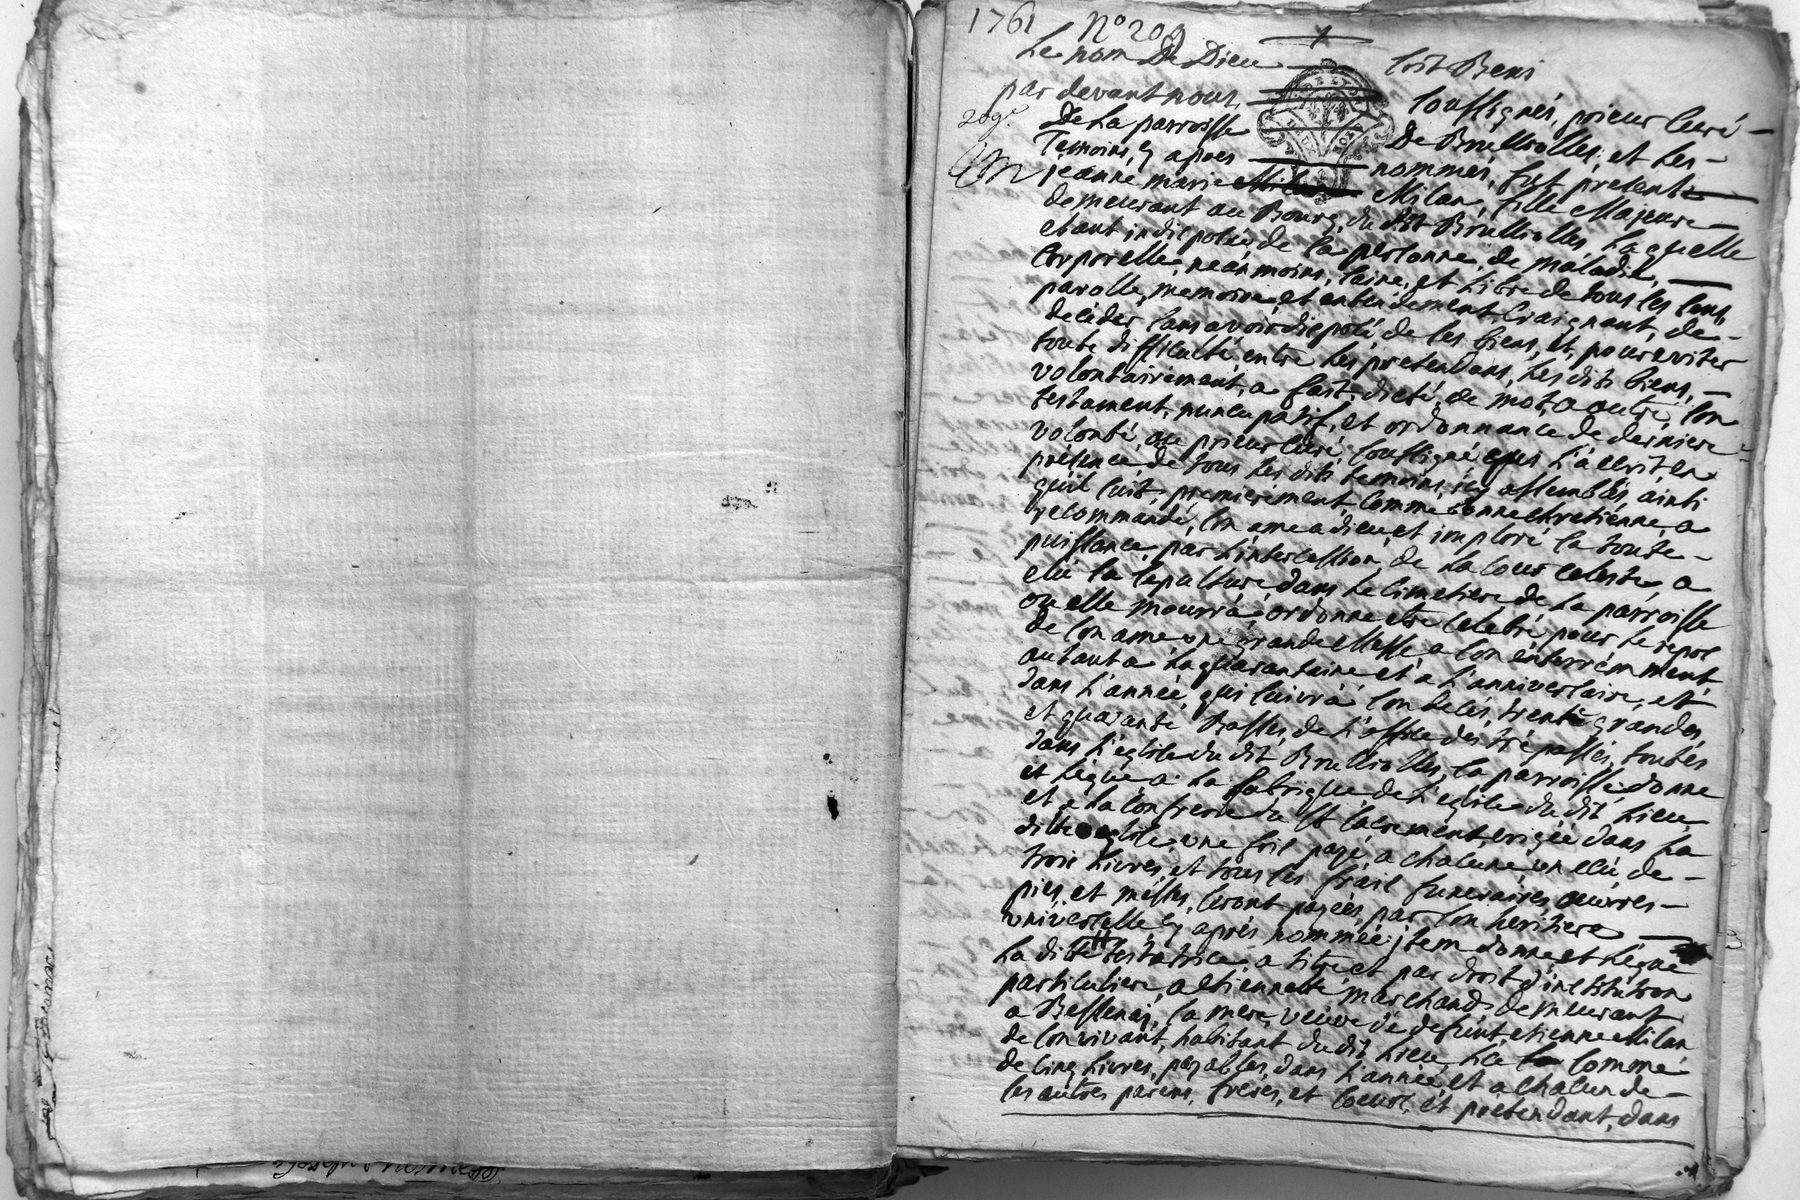 1761 N° 209
Le nom De Dieu soit Beni
par devant nous soussignés, prieur curé
209e De La parroisse De Brullioles, et Les
Temoins cy apres nommés, fut presente
jeanne marie Milan, fille Majeure
demeurant au Bourg du dit Brullioles, Laquelle
etant indisposée de sa personne, de maladie
corporelle, neanmoins, saine, et Libre de tous ses sens,
parolle, memoire et entendement, craignant, de
deceder sans avoir disposé, de ses biens, et, pour eviter
toute difficulté entre Les pretendans, Les dits biens,
volontairement, a fait, dicté, de mot, a autre, son
testament, nuncupatif, et ordonnance de derniere
volonté, au prieur curé soussigné qui L'a ecrit en
présence de tous Les dits temoins, icy assemblés, ainsi
qu'il suit, premierement, comme bonne chretienne, a
recommandé, son ame a dieu, et imploré sa toute
puissance, par L'intercession, de La cour celeste, a
elu sa sepulture, dans Le cimetiere de La parroisse
ou elle mourra, ordonne etre celebré pour Le repos
de son ame une grande Messe a son enterremment
autant a La quarantaine et a L'anniversaire, et
dans L'année, qui suivra son deces, trente grandes
et quarante Basses, de L'office des trépassés, toutes
dans L'eglise du dit Brullioles, sa parroisse, donne
et Légue a La fabrique de L'eglise du dit Lieu
et a La confrerie du St Sacrement, erigée dans La
ditte eglise une fois payé, a chacune un ecu de
trois Livres, et tous les frais funeraires, œuvres
pies, et messes, seront payées, par son héritiere
universelle cy aprés nommée; jtem donne et Légue
La ditte testatrice, a titre et par droit d'institution
particuliere a etiennette marchand, demeurant
a Bessenaj, sa mere, veuve de defunt, etienne Milan
de son vivant, habitant du dit Lieu, La somme
de cinq Livres, payables, dans L'année et a chacun de
ses autres parens, freres, et sœurs, et pretendant, dans